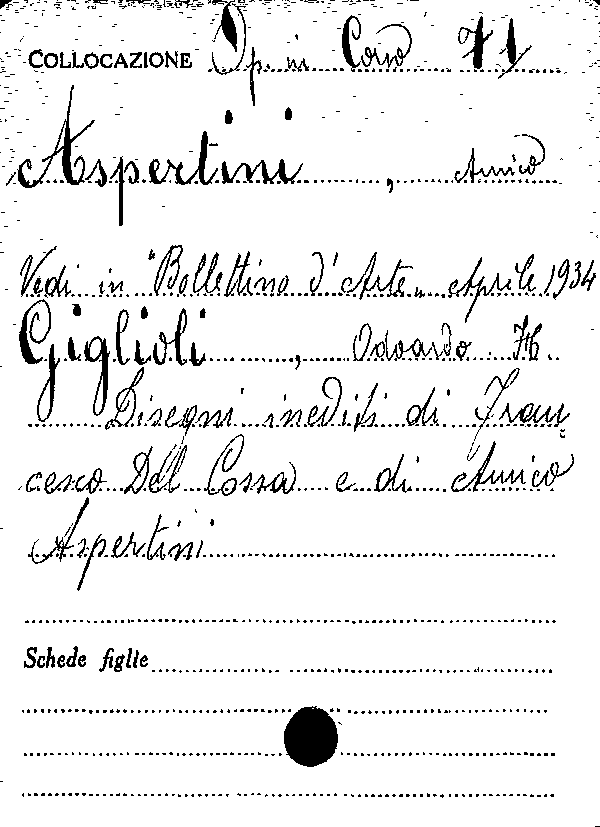 COLLOCAZIONE Op. in Corso 71
Aspertini, Amico
Vedi in "Bollettino d'Arte„ Aprile 1934
Giglioli, Odoardo H.
Disegni inediti di Fran=
cesco Del Cossa e di Amico
Aspertini
Schede figlie